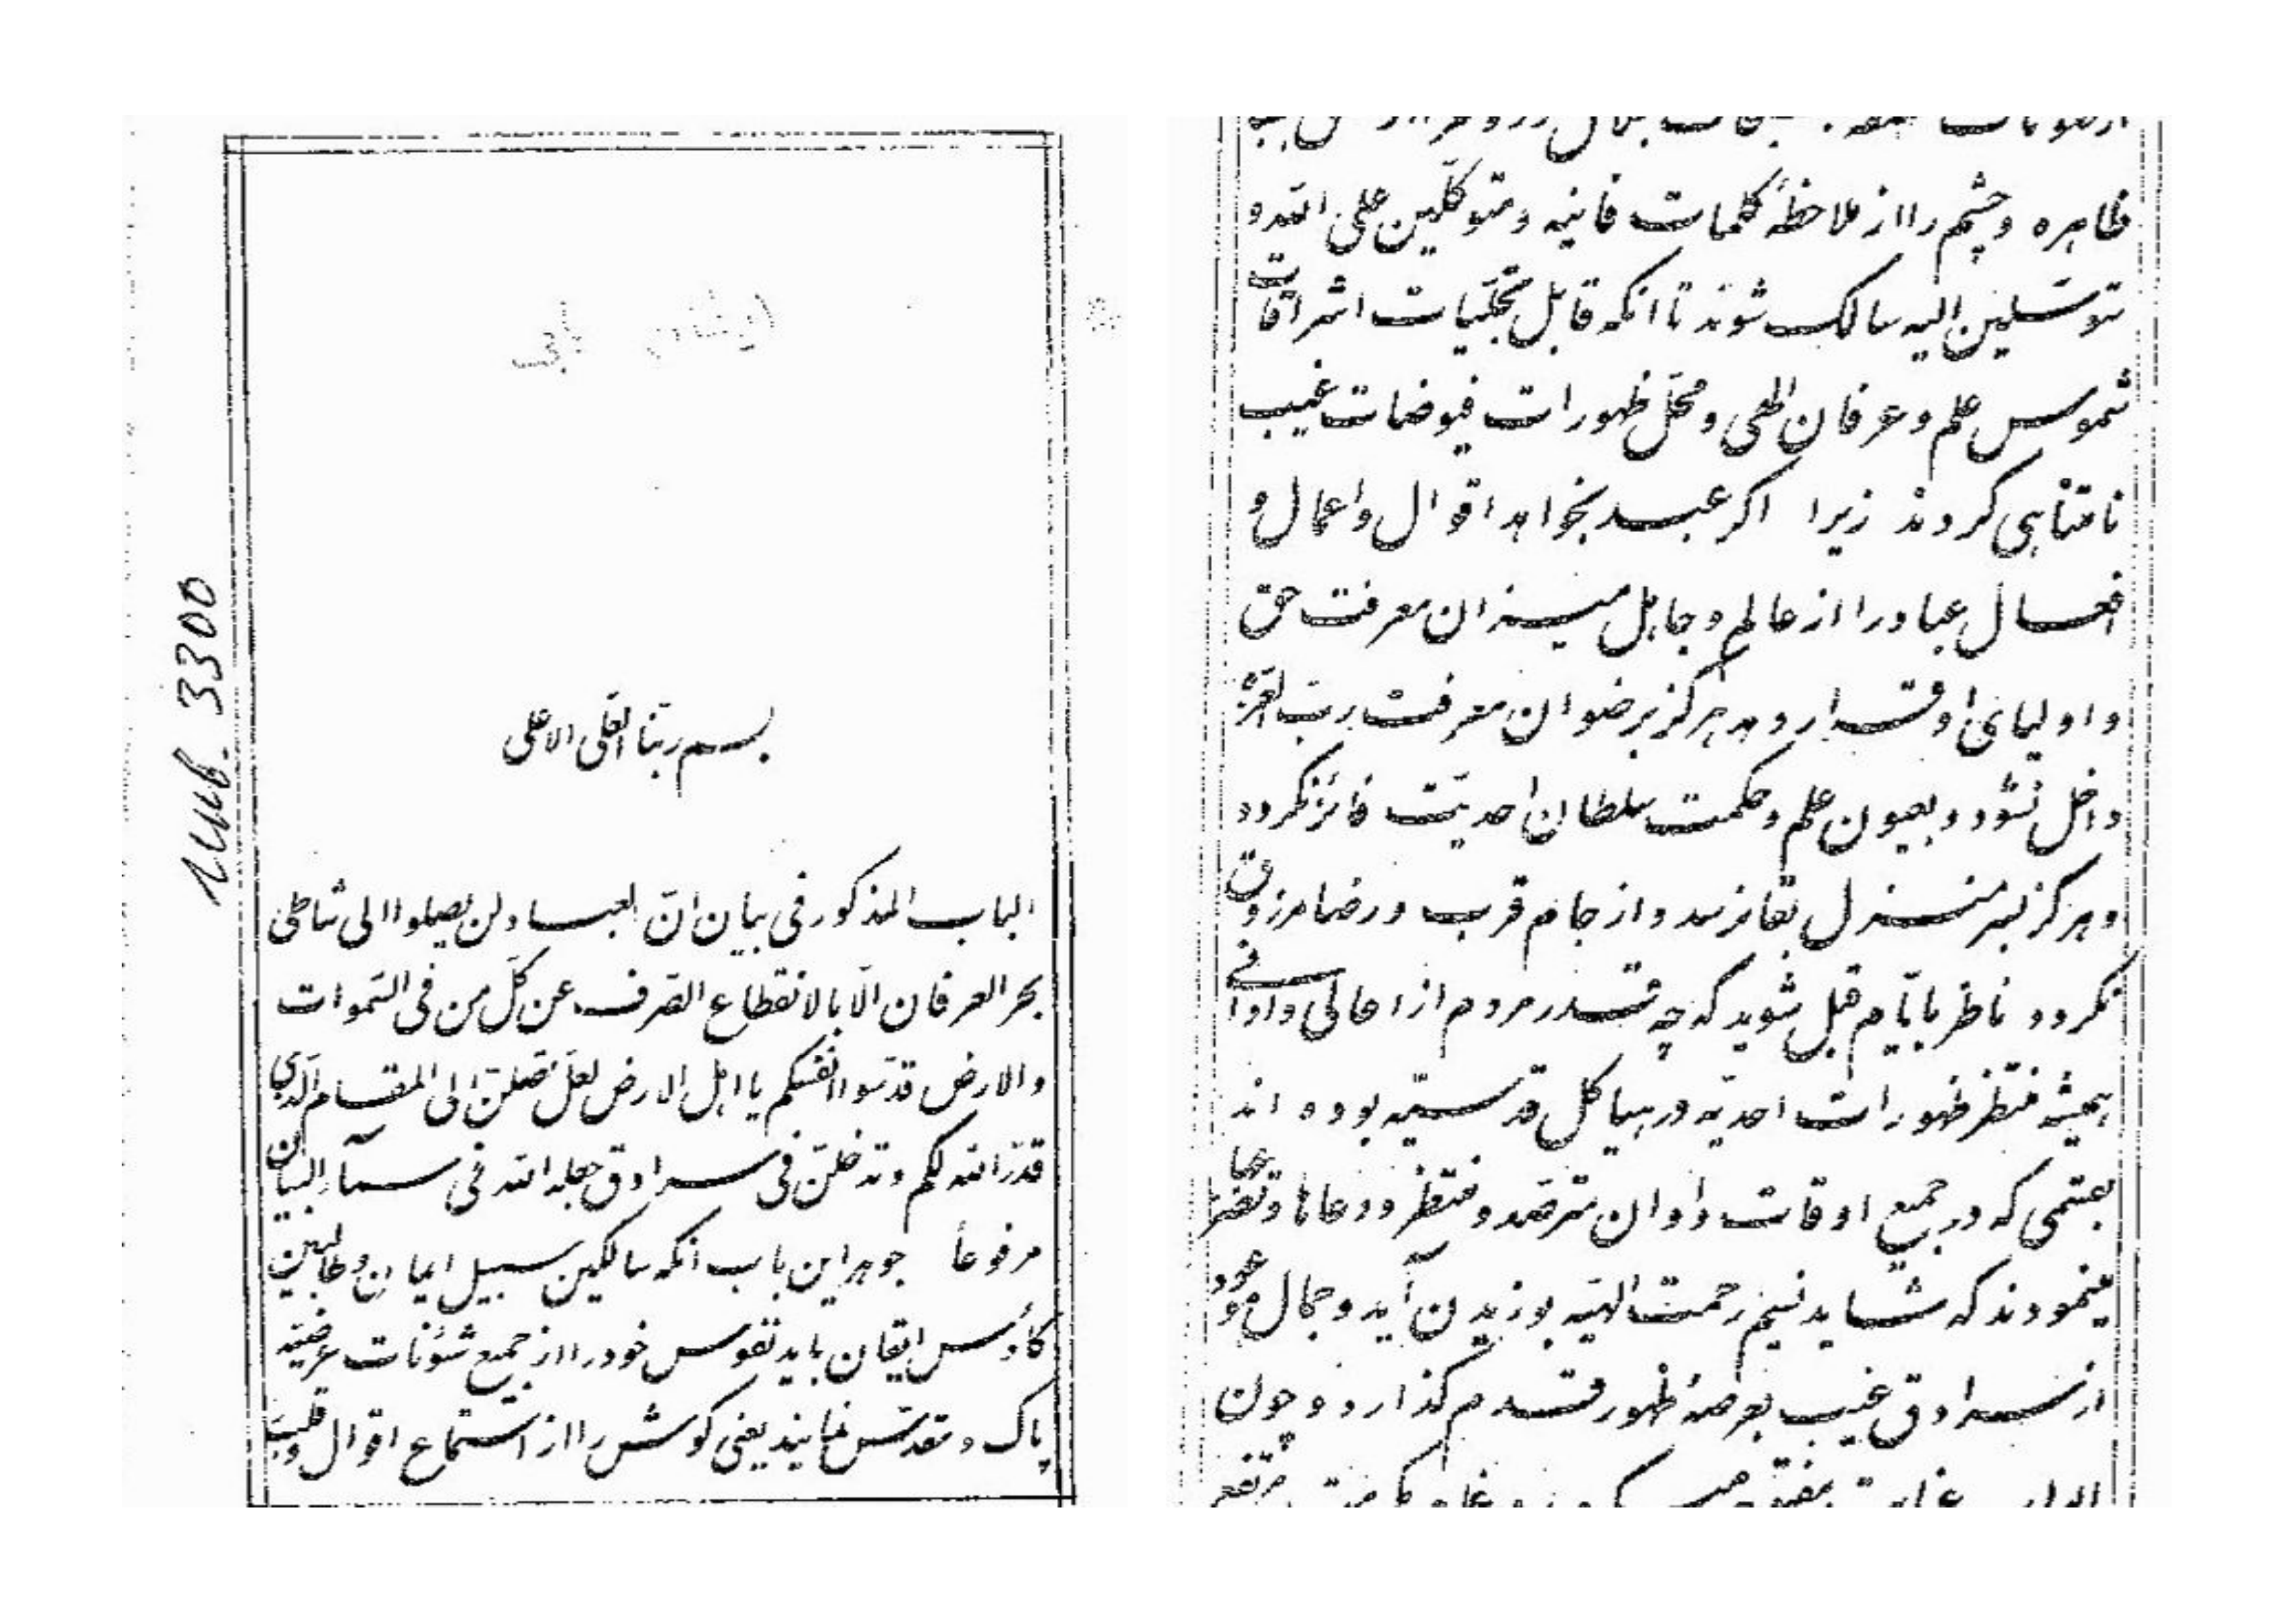 Инв. 3300
بسم ربنا العلی الاعلی
الباب المذکور فی بیان انّ العباد لن یصلوا الی شاطی
بحر العرفان الّا بالانقطاع الصّرف عن کلّ من فی السّموات
والارض قدّسوا انفسکم یا اهل الارض لعلّ تصلنّ الی المقام الّذی
قدّر الله لکم و تدخلنّ فی سرادق جعله الله فی سمآء البیان
مرفوعاً جوهر این باب انکه سالکین سبیل ایمان و طالبین
کأوس ایقان باید نفوس خود را از جمیع شئونات عرضیّه
پاک و مقدّس نمایند یعنی گوش را از استماع اقوال و قلب
ظاهره و چشم را از ملاحظهٔ کلمات فانیه و متوکّلین علی الله و
متوسّلین الیه سالک شوند تا انکه قابل تجلّیات اشراقات
شموس علم و عرفان الهی و محلّ ظهورات فیوضات غیب
نامتناهی کردند زیرا اکر عبد بخواهد اقوال و اعمال و
افعال عباد را از عالم و جاهل میزان معرفت حق
و اولیای او قرار دهد هرکز برضوان معرفت ربّ العزّة
داخل نشود و بعیون علم و حکمت سلطان احدیّت فائز نکردد
و هرکز بسر منزل بقا نرسد و از جام قرب و رضا مرزوق
نکردد ناظر بایّام قبل شوید که چه قدر مردم از اعالی و ادانی
همیشه منتظر ظهورات احدیّه در هیاکل قدسیّه بوده اند
بقسمی که در جمیع اوقات و اوان مترصّد و منتظر و دعاها و تضرّعها
مینمودند که شاید نسیم رحمت الهیّه بوزیدن آید و جمال موعود
از سرادق غیب بعرصهٔ ظهور قدم گذارد و چون